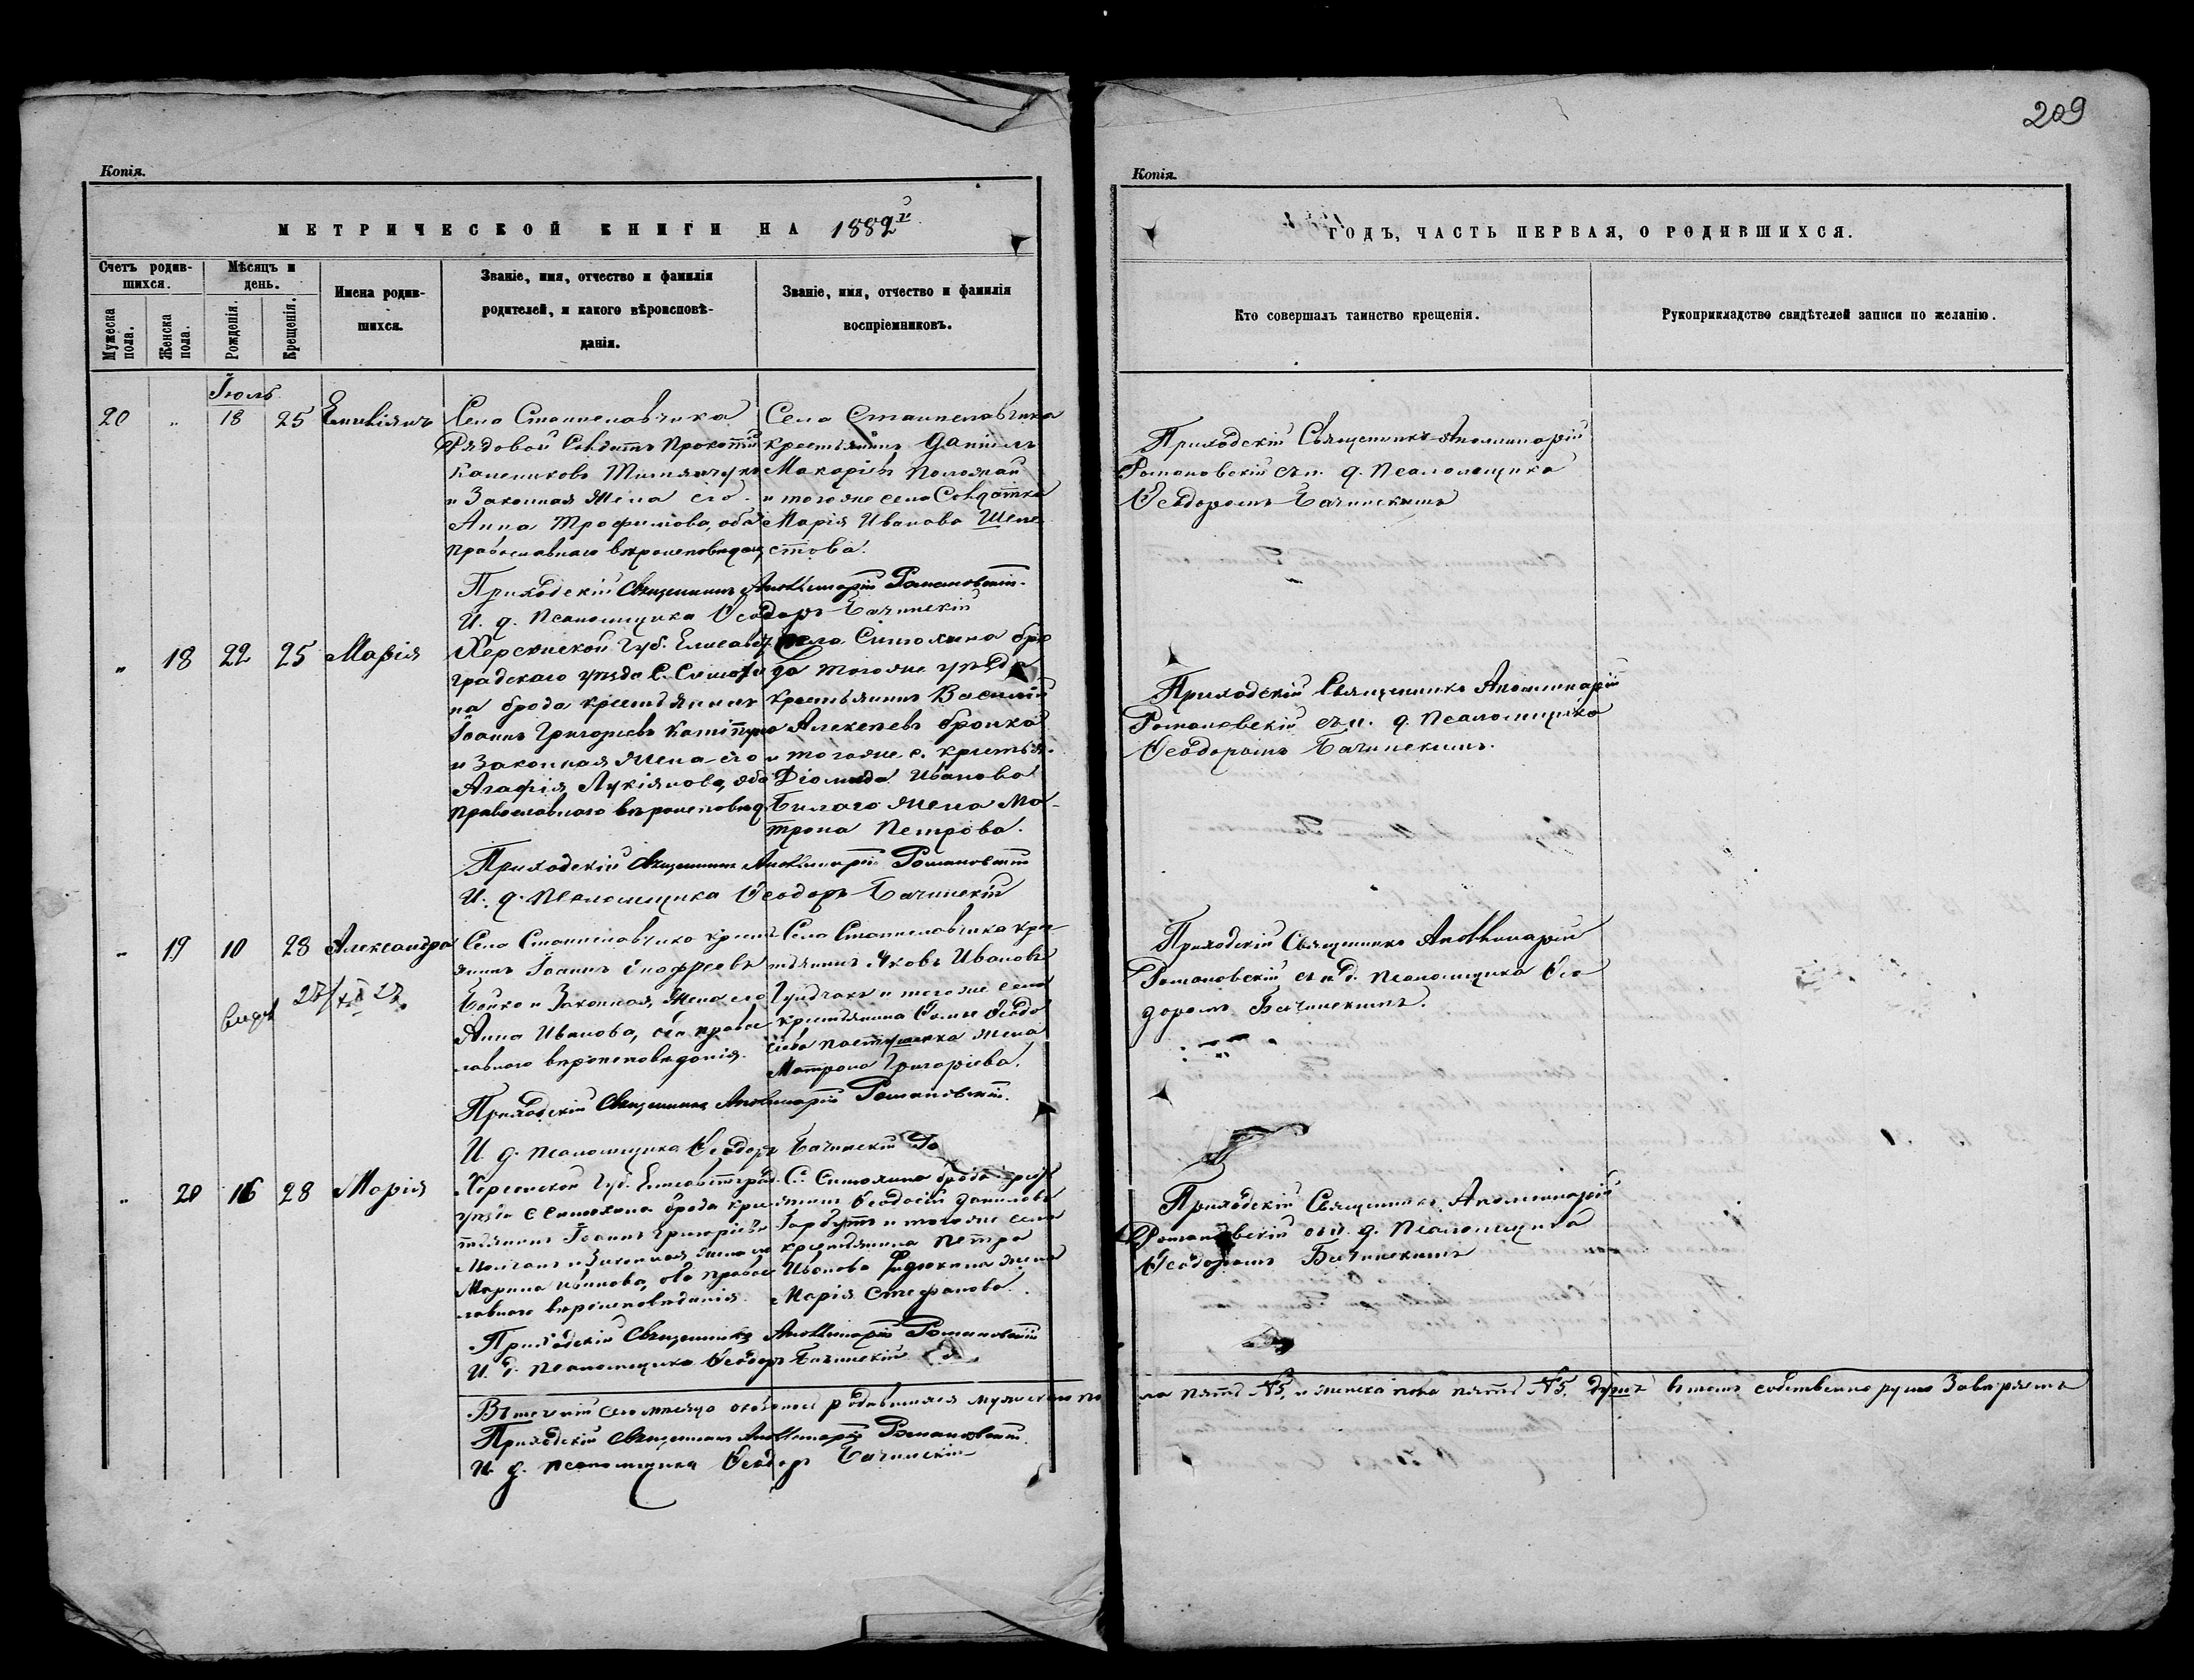 209
Копія.
МЕТРИЧЕСКОЙ КНИГИ НА 1882й
Счетъ родив-
шихся.
Мѣсяцъ и
день.
Имена родив-
шихся.
Званіе, имя, отчество и фамилія
родителей, и какого вѣроисповѣ-
данія.
Званіе, имя, отчество и фамилія
воспріемниковъ.
Мужеска
пола.
Женска
пола.
Рожденія.
Крещенія.
Іюль
20 " 18 25
Села Станиславчика
Рядовой Солдатъ Прокопій
и Законная Жена его
Анна Трофимова, оба
православнаго вѣроисповѣдан,
Села Станиславчика
крестьянинъ Даніилъ
Макаріевъ
и тогоже села Солдатка
Марія Иванова Шепе
стова.
Приходскій Священникъ Аполлинарій Романовскій.
И. д. Псаломщика Ѳеодоръ Бачинскій
" 18 22 25 Марія
Херсонской Губ. Елисавет
градскаго уѣзда С. Синюхи
на брода крестьянинъ
Іоаннъ Григорьевъ
и Законная Жена его
Агафія Лукіянова, оба
православнаго вѣроисповѣд.
Села Синюхина бро
да тогоже уѣзда
крестьянинъ Василій
Алексѣевъ Бройка
и тогоже с. крестья.
Діомида Иванова
Билаго жена Ма-
трона Петрова.
Приходскій Священникъ Аполлинарій Романовскій
И. д. Псаломщика Ѳеодоръ Бачинскій
" 19 10 28 Александра
Села Станиславчика крест
янинъ Іоаннъ Онофреевъ
Бойко и Законная Жена его
Анна Иванова, оба правос
лавнаго вѣроисповѣданія.
Села Станиславчика кре-
стьянинъ Яковъ Ивановъ
и тогоже села
крестьянина Ѳеодо
жена
Матрона Григоріева.
Приходскій Священникъ Аполлинарій Романовскій.
И. д. Псаломщика Ѳеодоръ Бачинскій
" 20 16 28 Марія
Херсонской Губ. Елисаветград.
уѣзда С Синюхина брода кре
стьянинъ Іоаннъ Григоріевъ
Молчанъ и Законная Жена его
Марина Иванова, оба правос
лавнаго вѣроисповѣданія.
С. Синюхина брода крест
янинъ Ѳеодосій Даниловъ
Гарбузъ и тогоже села
крестьянина Петра
Иванова жена
Марія Стефанова.
Приходскій Священникъ Аполлинарій Романовскій
И. д. Псаломщика Ѳеодоръ Бачинскій
Въ теченіи сего мѣсяца родившихся мужеска по
Приходскій Священникъ Аполлинарій Романовскій
И. д. Псаломщика Ѳеодоръ Бачинскій
Копія.
ГОДЪ, ЧАСТЬ ПЕРВАЯ, О РОДИВШИХСЯ.
Кто совершалъ таинство крещенія.
Рукоприкладство свидѣтелей записи по желанію.
Приходскій Священникъ Аполлинарій
Романовскій съ и. д. Псаломщика
Ѳеодоромъ Бачинскимъ
Приходскій Священникъ Аполлинарій
Романовскій съ и. д. Псаломщика
Ѳеодоромъ Бачинскимъ.
Приходскій Священникъ Аполлинарій
Романовскій съ и д. Псаломщика Ѳео
доромъ Бачинскимъ.
Приходскій Священникъ Аполлинарій
Романовскій съ и. д. Псаломщика
Ѳеодоромъ Бачинскимъ
ла пять №5. и женска пола пять №5. душъ въ томъ собственноручно Завѣряемъ